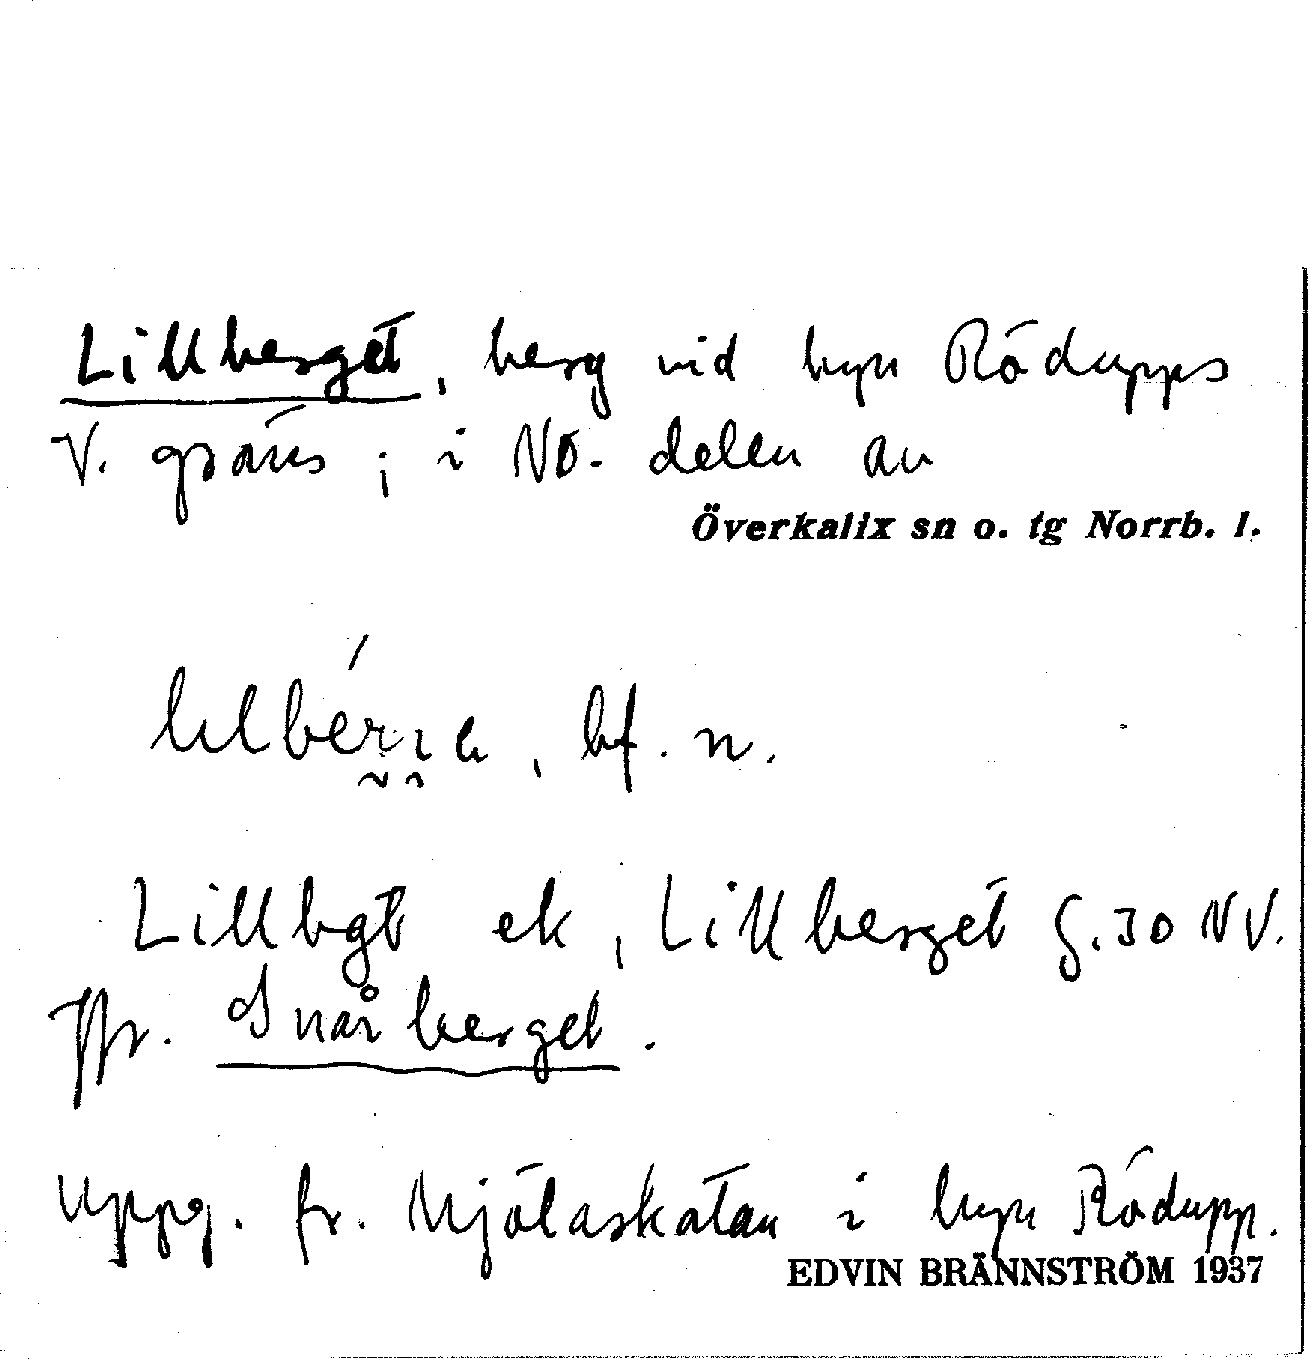 Lillberget, berg vid byn Rödupps
V. gräns; i NÖ. delen av
Överkalix sn o. tg Norrb. l.
bf. n.
Lillbgt ek, Lillberget G. 30 NV.
Jfr. Snårberget.
Uppg. fr. Mjölaskatan i byn Rödupp.
EDVIN BRÄNNSTRÖM 1937